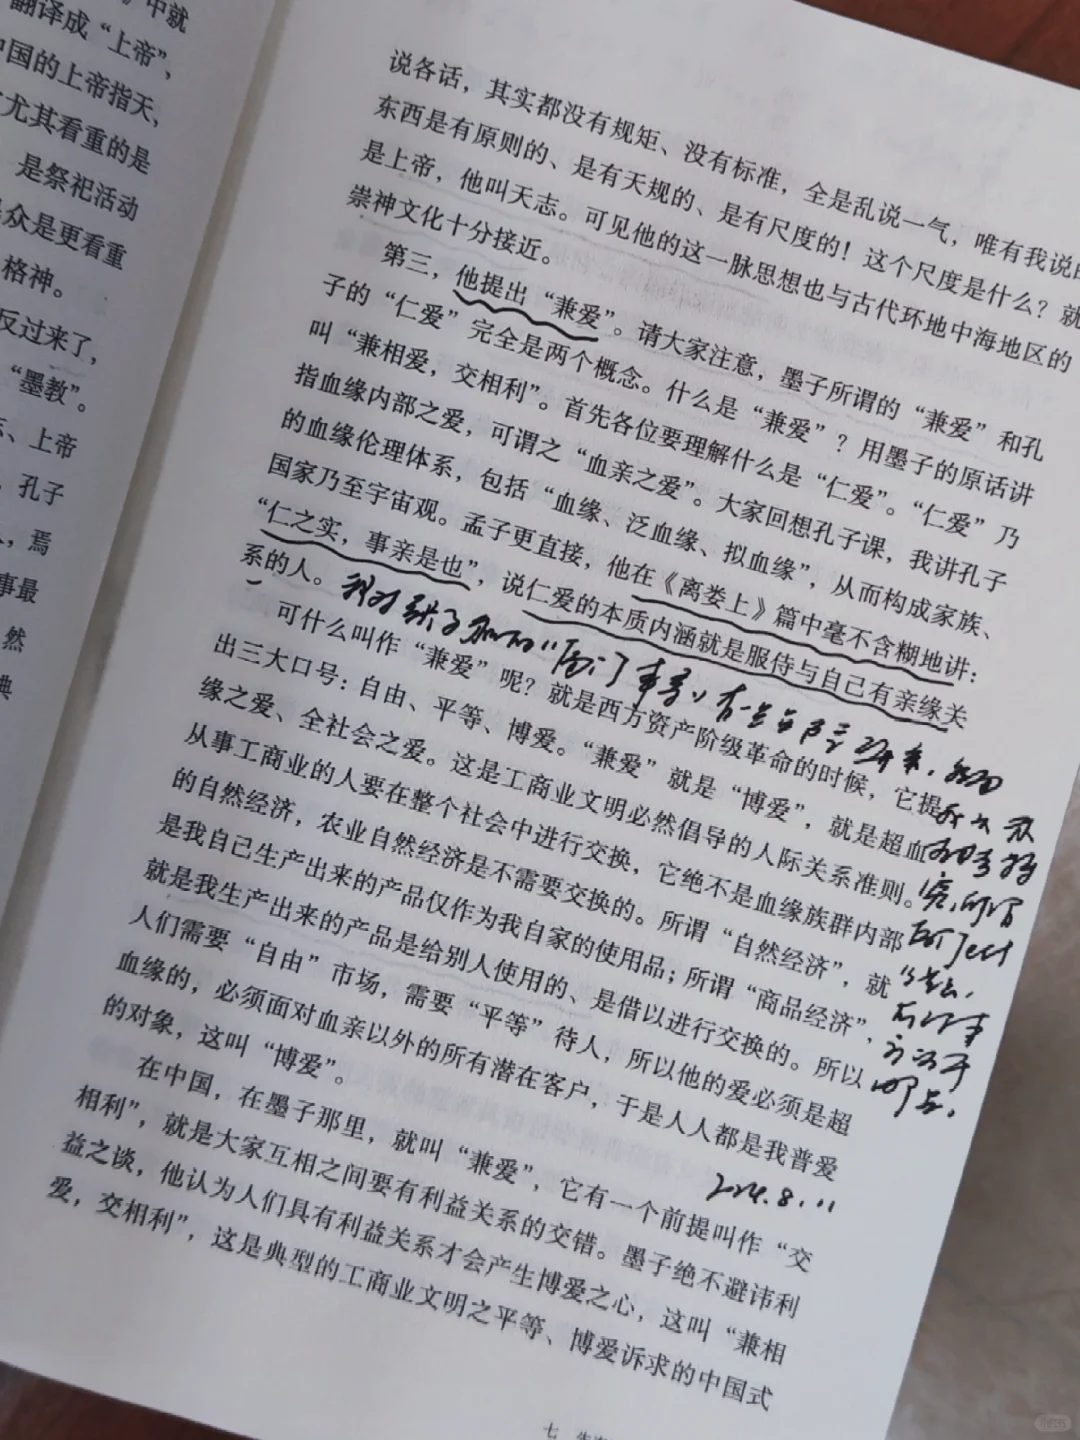 中就
翻译成“上帝”，
中国的上帝指天，
尤其看重的是
是祭祀活动
众是更看重
格神。
反过来了，
“墨教”。
、上帝
，孔子
，焉
事最
然
典
说各话，其实都没有规矩、没有标准，全是乱说一气，唯有我说的
东西是有原则的、是有天规的、是有尺度的！这个尺度是什么？就
是上帝，他叫天志。可见他的这一脉思想也与古代环地中海地区的
崇神文化十分接近。
第三，他提出“兼爱”。请大家注意，墨子所谓的“兼爱”和孔
子的“仁爱”完全是两个概念。什么是“兼爱”？用墨子的原话讲
叫“兼相爱，交相利”。首先各位要理解什么是“仁爱”。“仁爱”乃
指血缘内部之爱，可谓之“血亲之爱”。大家回想孔子课，我讲孔子
的血缘伦理体系，包括“血缘、泛血缘、拟血缘”，从而构成家族、
国家乃至宇宙观。孟子更直接，他在《离娄上》篇中毫不含糊地讲：
“仁之实，事亲是也”，说仁爱的本质内涵就是服侍与自己有亲缘关
系的人。
可什么叫作“兼爱”呢？就是西方资产阶级革命的时候，它提
出三大口号：自由、平等、博爱。“兼爱”就是“博爱”，就是超血
缘之爱、全社会之爱。这是工商业文明必然倡导的人际关系准则。
从事工商业的人要在整个社会中进行交换，它绝不是血缘族群内部
的自然经济，农业自然经济是不需要交换的。所谓“自然经济”，就
是我自己生产出来的产品仅作为我自家的使用品；所谓“商品经济”，
就是我生产出来的产品是给别人使用的、是借以进行交换的。所以
人们需要“自由”市场，需要“平等”待人，所以他的爱必须是超
血缘的，必须面对血亲以外的所有潜在客户，于是人人都是我普爱
的对象，这叫“博爱”。
在中国，在墨子那里，就叫“兼爱”，它有一个前提叫作“交
相利”，就是大家互相之间要有利益关系的交错。墨子绝不避讳利
益之谈，他认为人们具有利益关系才会产生博爱之心，这叫“兼相
爱，交相利”，这是典型的工商业文明之平等、博爱诉求的中国式
2024.8.11
七